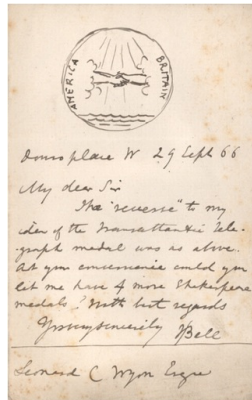 AMERICA BRITAIN
place W 29 Sept 66
My dear Sir
The "reverse" to my
idea of the Transatlantic Tele-
graph medal was as above.
At your convenience could you
let me have 4 more Shakespere
medals? With best regards
Yours sincerely
JBell
Leonard C Wyon Esqre